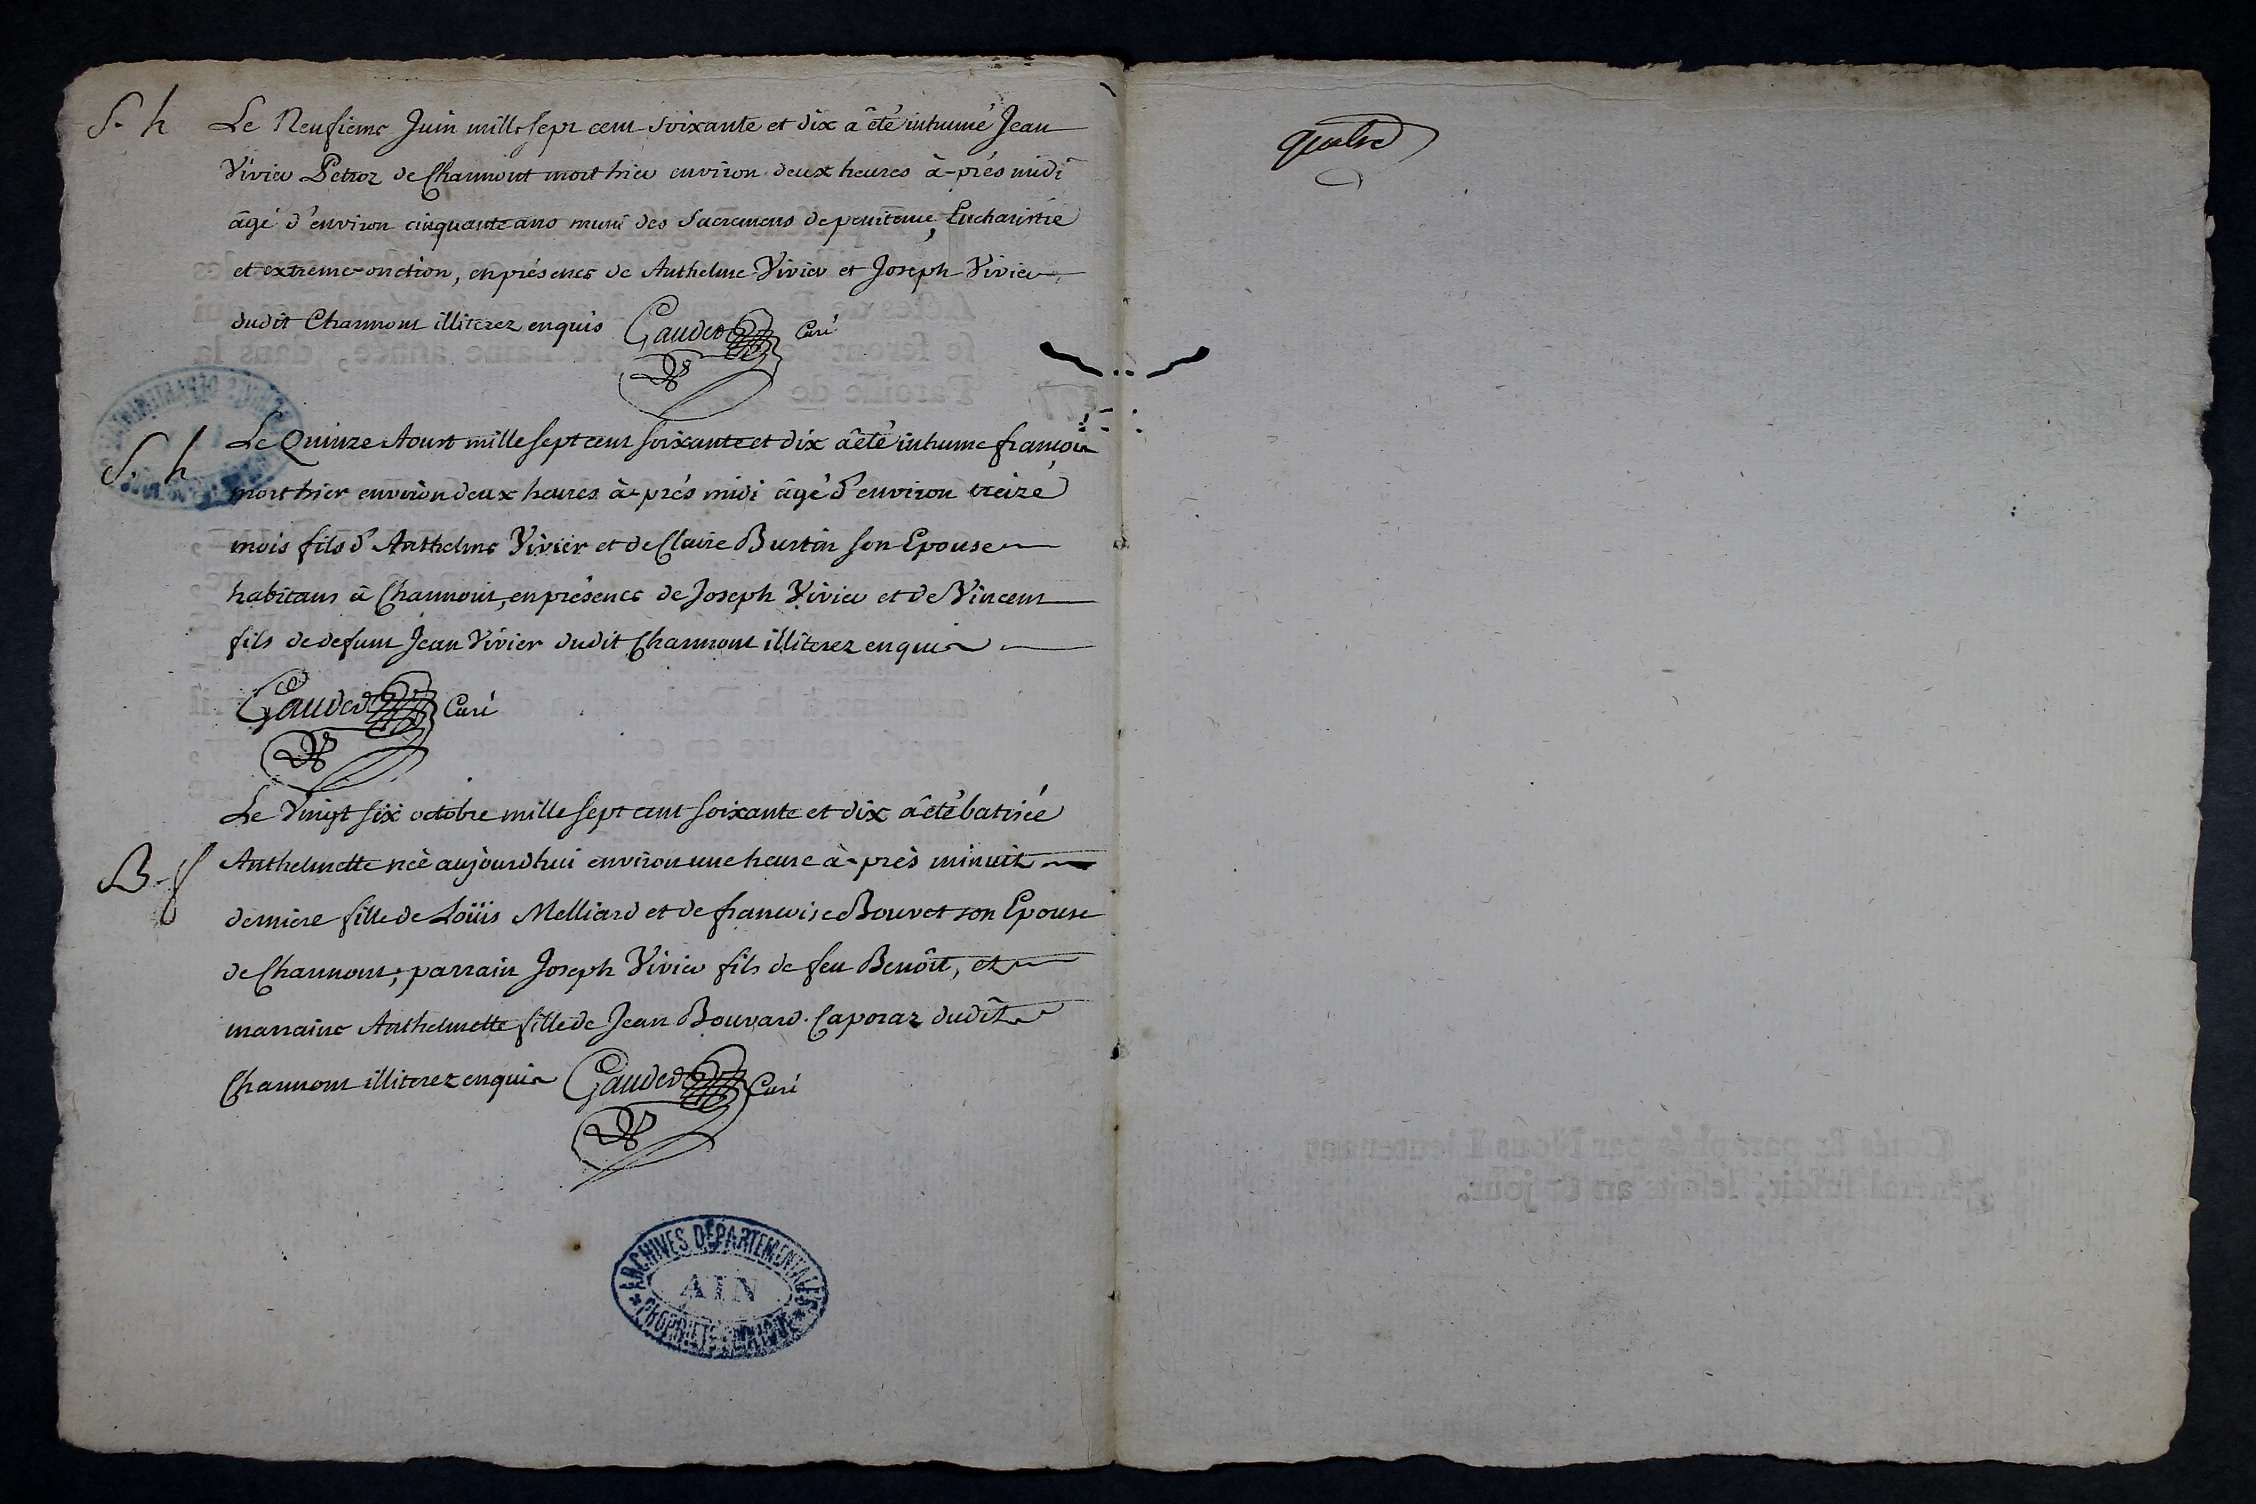 S. h
Le Neufieme Juin mille sept cent soixante et dix â êté inhumé Jean
Vivier Petroz de Charmont mort hier environ deux heures à-près midi
âgé d'environ cinquante ans muni des Sacremens de penitence, Eucharistie
et extreme-onction, en présence de Anthelme Vivier et Joseph Vivier
dudit Charmont illiterez enquis Gaudet Curé
S. h
Le Quinze Aoust mille sept cent soixante et dix â êté inhumé francois
mort hier environ deux heures à-près midi âgé d'environ treize
mois fils d'Anthelme Vivier et de Claire Burtin son Epouse
habitans à Charmont, en présence de Joseph Vivier et de Vincent
fils de defunt Jean Vivier dudit Charmont illiterez enquis
Gaudet Curé
B. f
Le Vingt six octobre mille sept cent soixante et dix â êté batisée
Anthelmette née aujourdhui environ une heure à-près minuit
derniere fille de Loüis Melliard et de francoise Bouvet son Epouse
de Charmont; parrain Joseph Vivier fils de feu Benôit, et
marraine Anthelmette fille de Jean Bouvard Caporaz dudît
Charmont illiterez enquis Gaudet Curé
ARCHIVES DÉPARTEMENTALES
AIN
* PROPRIÉTÉ PUBLIQUE *
quatre